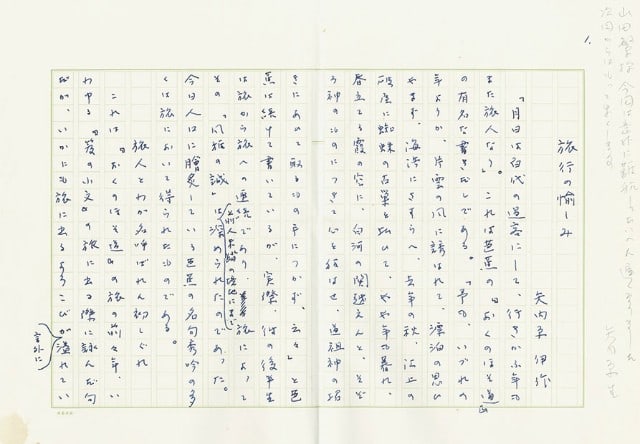 1.
旅行の愉しみ
矢内原伊作
「月日は百代の過客にして、行きかふ年も
また旅人なり」。これは芭蕉の『おくのほそ道』
の有名な書き出しである。「予も、いづれの
年よりか、片雲の風に誘はれて、漂泊の思ひ
やまず、海浜にさすらへ、去年の秋、江上の
破屋に蜘蛛の古巣を払ひて、やや年も暮れ、
春立てる霞の空に、白河の関越えんと、そぞ
ろ神のものにつきて心を狂はせ、道祖神の招
きにあひて取るもの手につかず、云々」と芭
蕉は続けて書いているが、実際、彼の後半生
は旅から旅への連続であり、旅によって
その「風雅の誠」は深められたのであった。
今日人口に膾炙している芭蕉の名句秀吟の多
くは旅において得られたものである。
旅人とわが名呼ばれん初しぐれ
これは『おくのほそ道』の旅の前々年、い
わゆる『笈の小文』の旅に出る際に詠んだ句
だが、いかにも旅に出るよろこびが言外に溢れてい